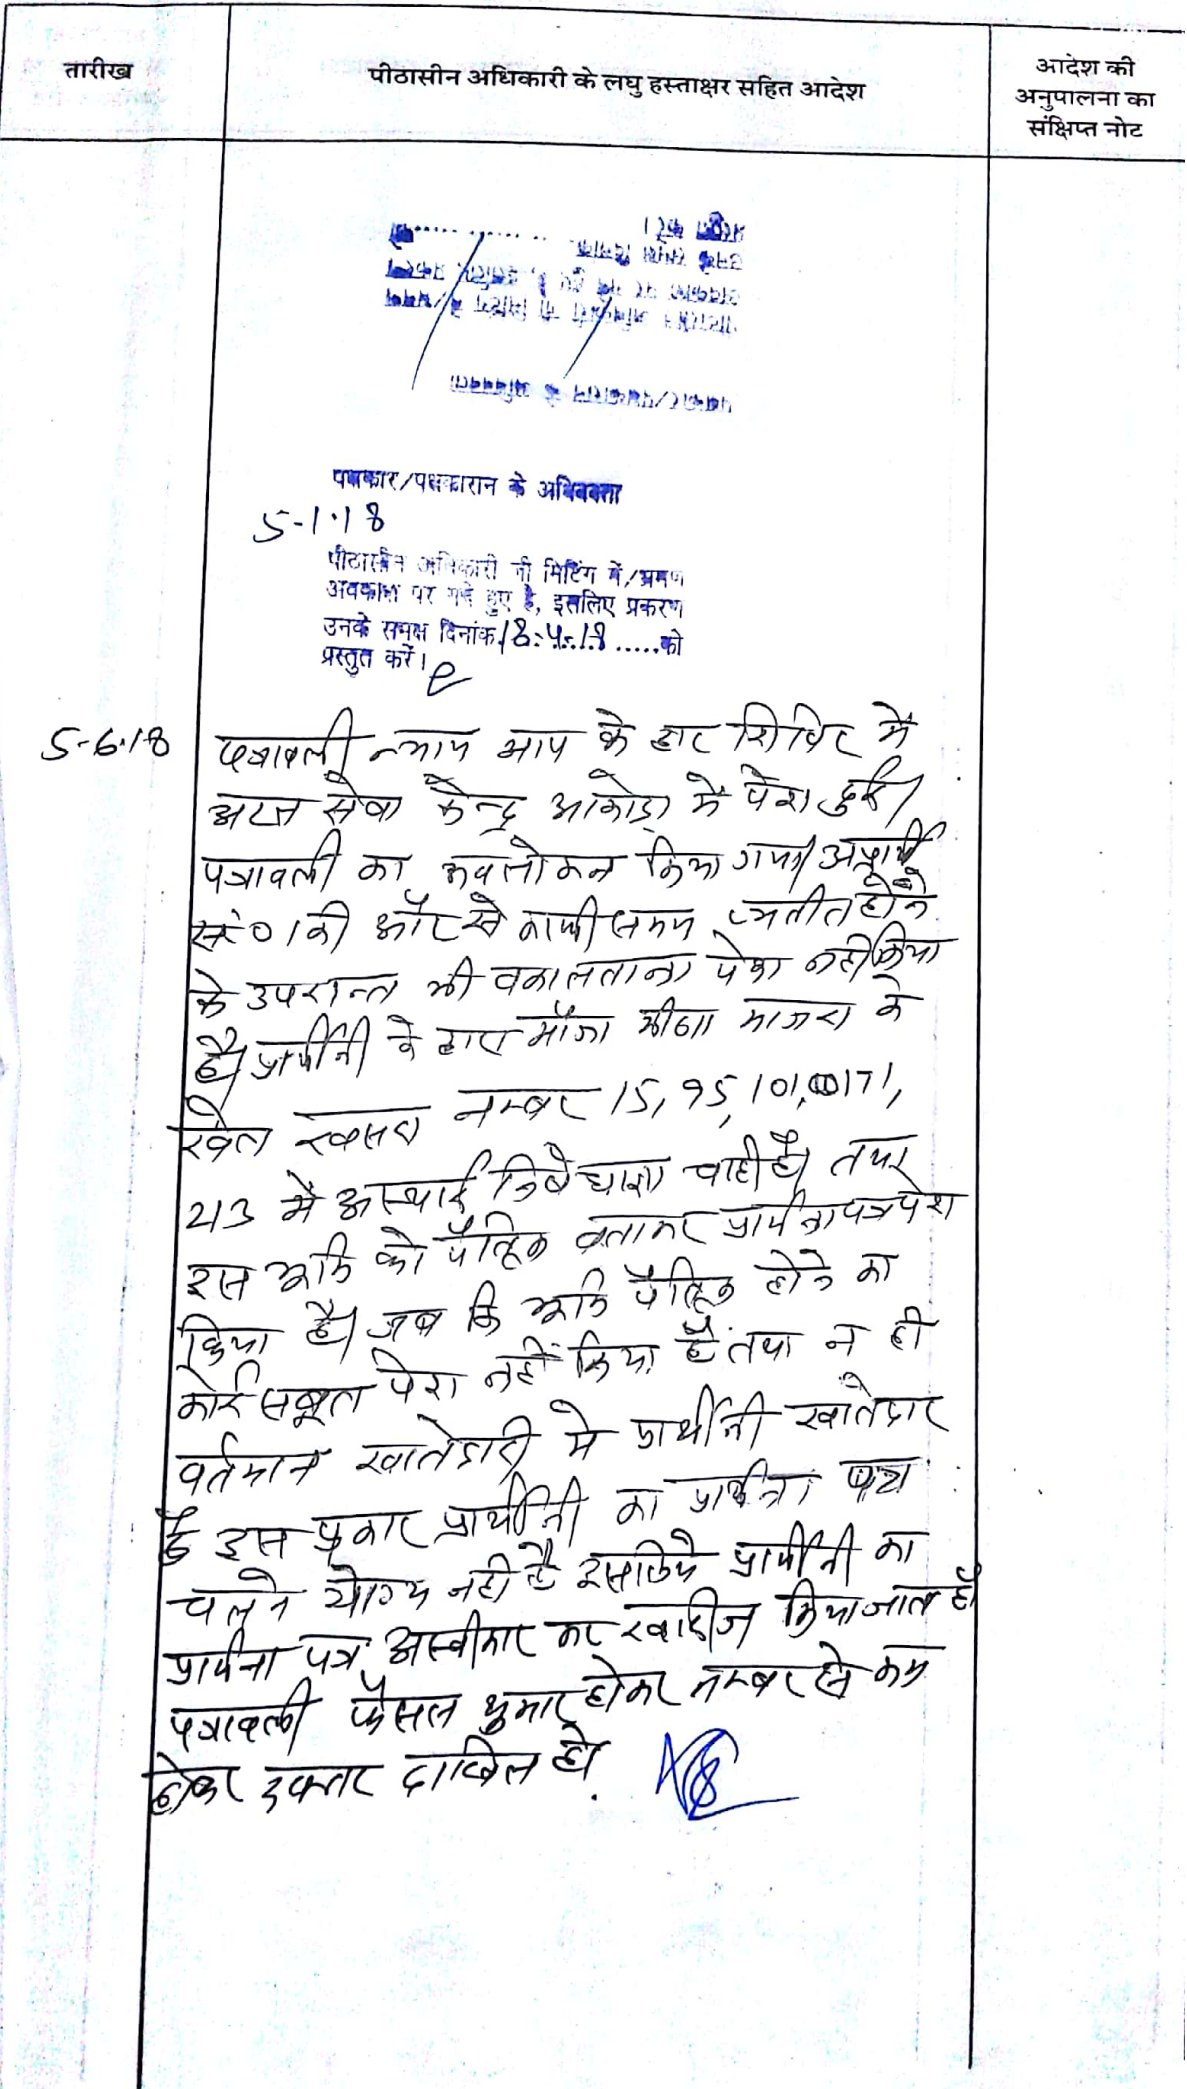 तारीख
पीठासीन अधिकारी के लघु हस्ताक्षर सहित आदेश
आदेश की
अनुपालना का
संक्षिप्त नोट
पक्षकार/पक्षकारान के अधिवक्ता
पीठासीन अधिकारी जी मिटिंग में/भ्रमण
अवकाश पर गये हुए है, इसलिए प्रकरण
उनके समक्ष दिनांक ..................को
प्रस्तुत करें।
पक्षकार/पक्षकारान के अधिवक्ता
5-1-18
पीठासीन अधिकारी जी मिटिंग में/भ्रमण
अवकाश पर गये हुए है, इसलिए प्रकरण
उनके समक्ष दिनांक 18.4.18 .....को
प्रस्तुत करें।
5-6-18
पत्रावली न्याय आप के द्वार शिविर में
अटल सेवा केन्द्र आकोड़ा में पेश हुई।
पत्रावली का अवलोकन किया गया। अप्रार्थी
सं० 01 की और से काफी समय व्यतीत होने
के उपरान्त भी वकालतनामा पेश नही किया
है। प्रार्थीनी के द्वारा मौजा माजरा के
खेत खसरा नम्बर 15, 95, 101, 171,
213 में अस्थाई निषेधाज्ञा चाही है। तथा
इस भूमि को पैतृिक बताकर प्रार्थना पत्र पेश
किया है। जब कि भूमि पैतृिक होने का
कोई सबूत पेश नहीं किया है तथा न ही
वर्तमान खातेदारी मे प्रार्थीनी खातेदार
है इस प्रकार प्रार्थीनी का प्रार्थना पत्र
चलने योग्य नही है इसलिये प्रार्थीनी का
प्रार्थना पत्र अस्वीकार कर खारीज किया जाता है
पत्रावली फैसल शुमार होकर नम्बर से कम
होकर दफ्तर दाखिल हो.